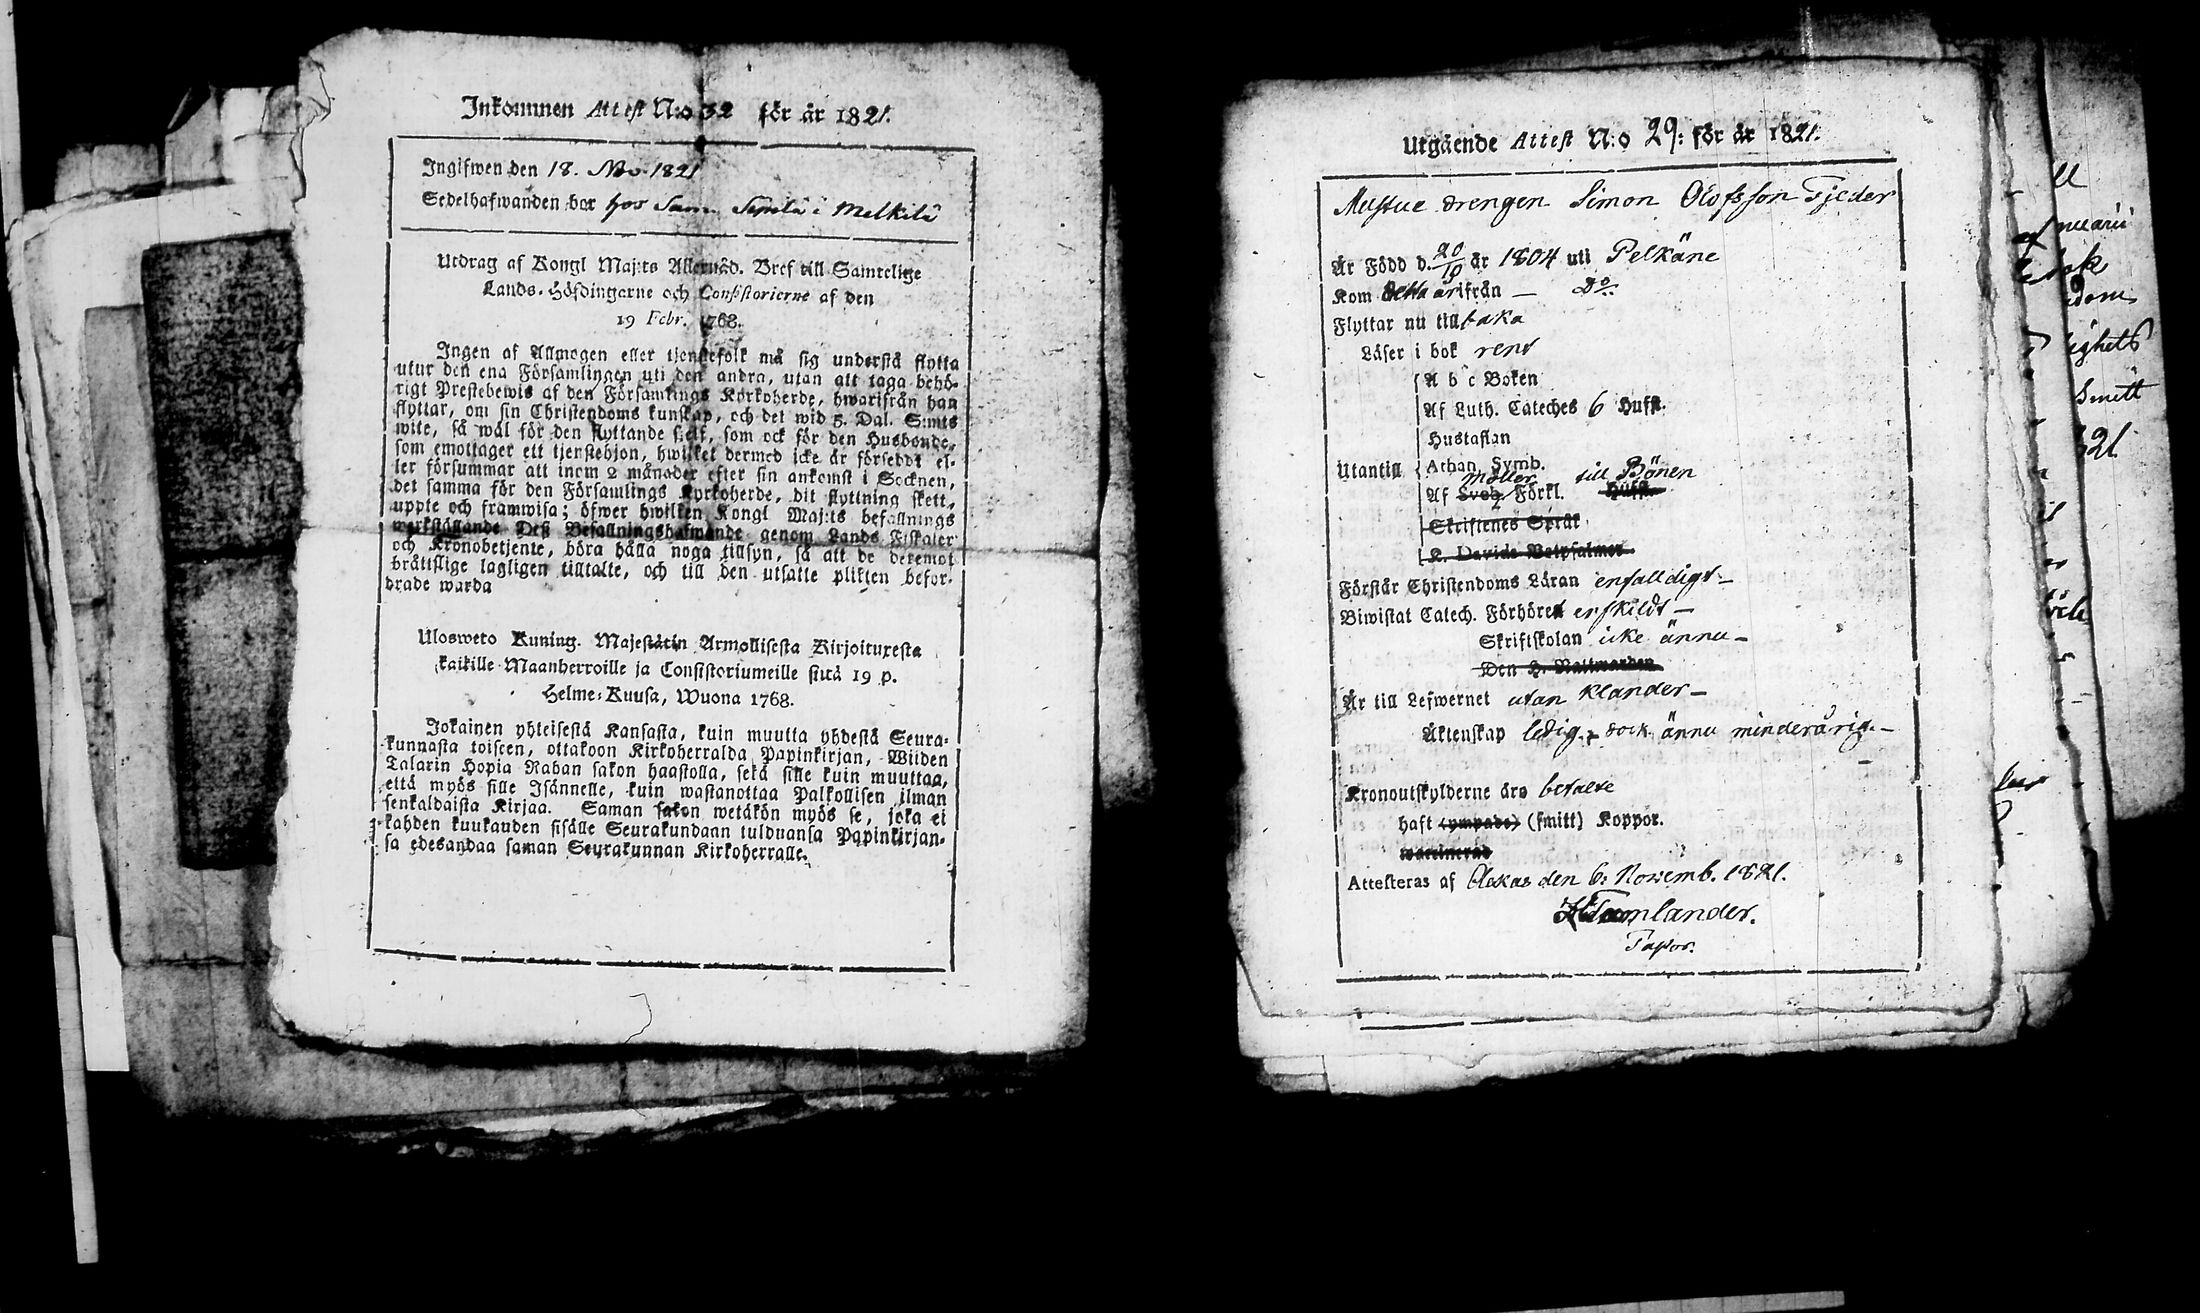 Inkommen Attest N:o 32 för år 1821.
Ingifwen den 18. Nov. 1821
Sedelhafwanden bor hos Sam. Sipilä i Melkilä
Utdrag af Kongl Maj:ts Allernåd. Bref till Samtelige
Lands-Höfdingarne och Consistorierne af den
19 Febr. 1768.
Ingen af Allmogen eller tjenstefolk må sig understå flytta
utur den ena Församlingen uti den andra, utan att taga behö-
rigt Prestebewis af den Församlings Kyrkoherde, hwarifrån han
flyttar, om sin Christendoms kunskap, och det wid 5. Dal. S:mts
wite, så wäl för den flyttande sjelf, som ock för den Husbonde,
som emottager ett tjenstehjon, hwilket dermed icke är försedt el-
ler försummar att inom 2 månader efter sin ankomst i Socknen,
det samma för den Församlings Kyrkoherde, dit flyttning skett,
uppte och framwisa; öfwer hwilken Kongl Maj:ts befallnings
werkställande Deß Befallningshafwande genom Lands Fiskaler
och Kronobetjente, böra hålla noga tillsyn, så att de deremot
bråttslige lagligen tilltalte, och till den utsatte plikten befor-
drade warda
Ulosweto Kuning. Majestätin Armollisesta Kirjoituxesta
kaikille Maanherroille ja Consistoriumeille siitä 19 p.
Helme-Kuusa, Wuona 1768.
Jokainen yhteisestä Kansasta, kuin muutta yhdestä Seura-
kunnasta toiseen, ottakoon Kirkoherralda Papinkirjan, Wiiden
Talarin Hopia Rahan sakon haastolla, sekä sille kuin muuttaa,
että myös sille Isännelle, kuin wastanottaa Palkollisen ilman
senkaldaista Kirjaa. Saman sakon wetäkön myös se, joka ei
kahden kuukauden sisälle Seurakundaan tulduansa Papinkirjan-
sa edesandaa saman Seurakunnan Kirkoherralle.
Utgående Attest N:o 29: för år 1821.
drengen Simon Olofsson Fjeder
Är Född d. 20/10 år 1804 uti Pelkäne
Kom detta år ifrån — Do
Flyttar nu till baka
Läser i bok rent
A b c Boken
Af Luth. Cateches 6 Hufst.
Hustaflan
Utantill Athan. Symb.
Möller till Bönen
Af Sveb. Förkl. Hufst.
Skriftenes Språk
2. Davids Botpsalmer
Förstår Christendoms Läran enfalldigt —
Biwistat Catech. Förhören enskildt —
Skriftskolan icke ännu —
Den H. Nattwarden
Är till Lefwernet utan klander —
Äktenskap ledig — dock ännu minderårig. —
Kronoutskylderne äro betalte
haft (ympade) (smitt) Koppor.
waccinerad
Attesteras af Akkas den 6: Novemb. 1821.
Pastor.